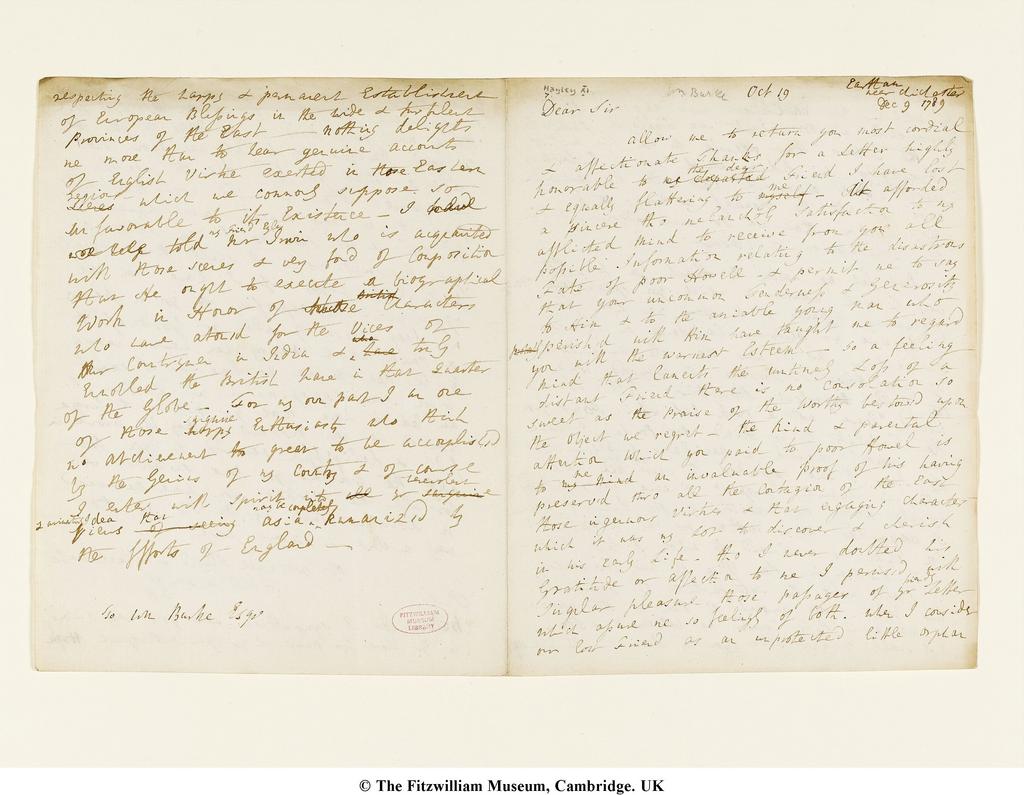 respecting the happy & permanent Establishment
of European Blessings in the wide & opulent
Provinces of the East — nothing delights
me more than to hear genuine accounts
of English Virtue exerted in those Eastern
regions
scenes which we commonly suppose so
unfavorable to its Existence — I
told my friend Eyles Irwin who is acquainted
with those scenes & very fond of Composition
that He ought to execute a biographical
Work in Honor of British Characters
who have atoned for the Vices of
their Countrymen in India & who truly
Ennobled the British name in that Quarter
of the Globe — For my own part I am one
of those sanguine happy Enthusiasts who think
no atchievement too great to be accomplish'd
by the Genius of my Country & of course
benevolent
I enter with spirit into all yr sanguine
& animating Idea that may be completely
Views of seeing Asia Humaniz'd by
the Efforts of England —
To Wm Burke Esqr
FITZWILLIAM
MUSEUM
LIBRARY
Hayley
Wm Burke
Oct 19
Eartham
near Chichester
Dec 9 1789
Dear Sir
allow me to return you most cordial
& affectionate Thanks for a Letter highly
the dear
honorable to my departed Friend I have lost
me
& equally flattering to myself — It afforded
a sincere tho melancholy Satisfaction to my
afflicted mind to receive from you all
possible Information relating to the disastrous
Fate of poor Howell — & permit me to say
that your uncommon Tenderness & Generosity
to Him & to the amiable young man who
perish'd with Him have taught me to regard
you with the warmest Esteem — To a feeling
mind that laments the untimely Loss of a
distant Friend there is no Consolation so
sweet as the Praise of the Worthy bestowed upon
the object we regret — the kind & parental
attention which you paid to poor Howel is
to my mind an invaluable proof of his having
preserved thro all the Contagion of the East
those ingenuous Virtues & that engaging character
which it was my Lot to discover & cherish
in his early Life — tho I never doubted his
Gratitude or affection to me I perused with
Singular pleasure those passages of yr friendly Letter
which assure me so feelingly of both. when I consider
our lost Friend as an unprotected little orphan
© The Fitzwilliam Museum, Cambridge. UK